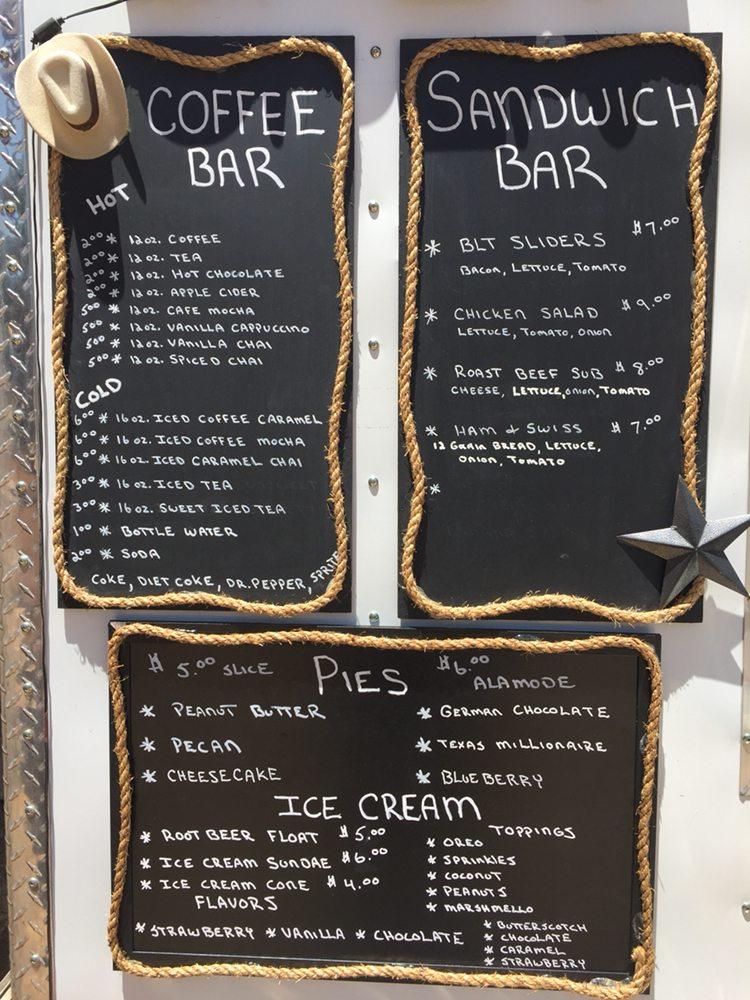 COFFEE
BAR
HOT
2.00 * 12 oz. COFFEE
2.00 * 12 oz. TEA
2.00 * 12 oz. HOT CHOCOLATE
2.00 * 12 oz. APPLE CIDER
5.00 * 12 oz. CAFE MOCHA
5.00 * 12 oz. VANILLA CAPPUCCINO
5.00 * 12 oz. VANILLA CHAI
5.00 * 12 oz. SPICED CHAI
COLD
6.00 * 16 oz. ICED COFFEE CARAMEL
6.00 * 16 oz. ICED COFFEE MOCHA
6.00 * 16 oz. ICED CARAMEL CHAI
3.00 * 16 oz. ICED TEA
3.00 * 16 oz. SWEET ICED TEA
1.00 * BOTTLE WATER
2.00 * SODA
COKE, DIET COKE, DR. PEPPER, SPRITE
SANDWICH
BAR
* BLT SLIDERS $7.00
BACON, LETTUCE, TOMATO
* CHICKEN SALAD $9.00
LETTUCE, TOMATO, ONION
* ROAST BEEF SUB $8.00
CHEESE, LETTUCE, ONION, TOMATO
* HAM & SWISS $7.00
12 GRAIN BREAD, LETTUCE,
ONION, TOMATO
*
$5.00 SLICE PIES $6.00
ALAMODE
* PEANUT BUTTER * GERMAN CHOCOLATE
* PECAN * TEXAS MILLIONAIRE
* CHEESECAKE * BLUEBERRY
ICE CREAM
* ROOT BEER FLOAT $5.00
* ICE CREAM SUNDAE $6.00
* ICE CREAM CONE $4.00
FLAVORS
* STRAWBERRY * VANILLA * CHOCOLATE
TOPPINGS
* OREO
* SPRINKLES
* COCONUT
* PEANUTS
* MARSHMELLO
* BUTTERSCOTCH
* CHOCOLATE
* CARAMEL
* STRAWBERRY